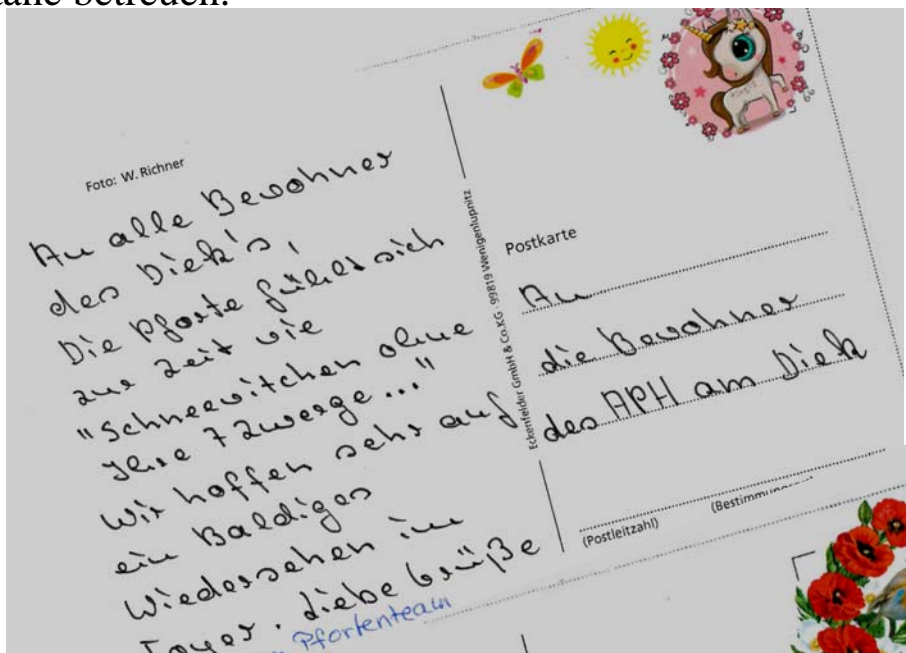 betreuen.
Foto: W. Richner
An alle Bewohner
des Diek's,
Die Pforte fühlt sich
zur Zeit wie
"Schneewitchen ohne
ihre 7 Zwerge..."
Wir hoffen sehr auf
ein Baldiges
Wiedersehen im
Foyer. Liebe Grüße
Pfortenteam
Eckenfelder GmbH & Co.KG · 99819 Wenigenlupnitz
Postkarte
An
die Bewohner
des APH am Diek
(Postleitzahl)